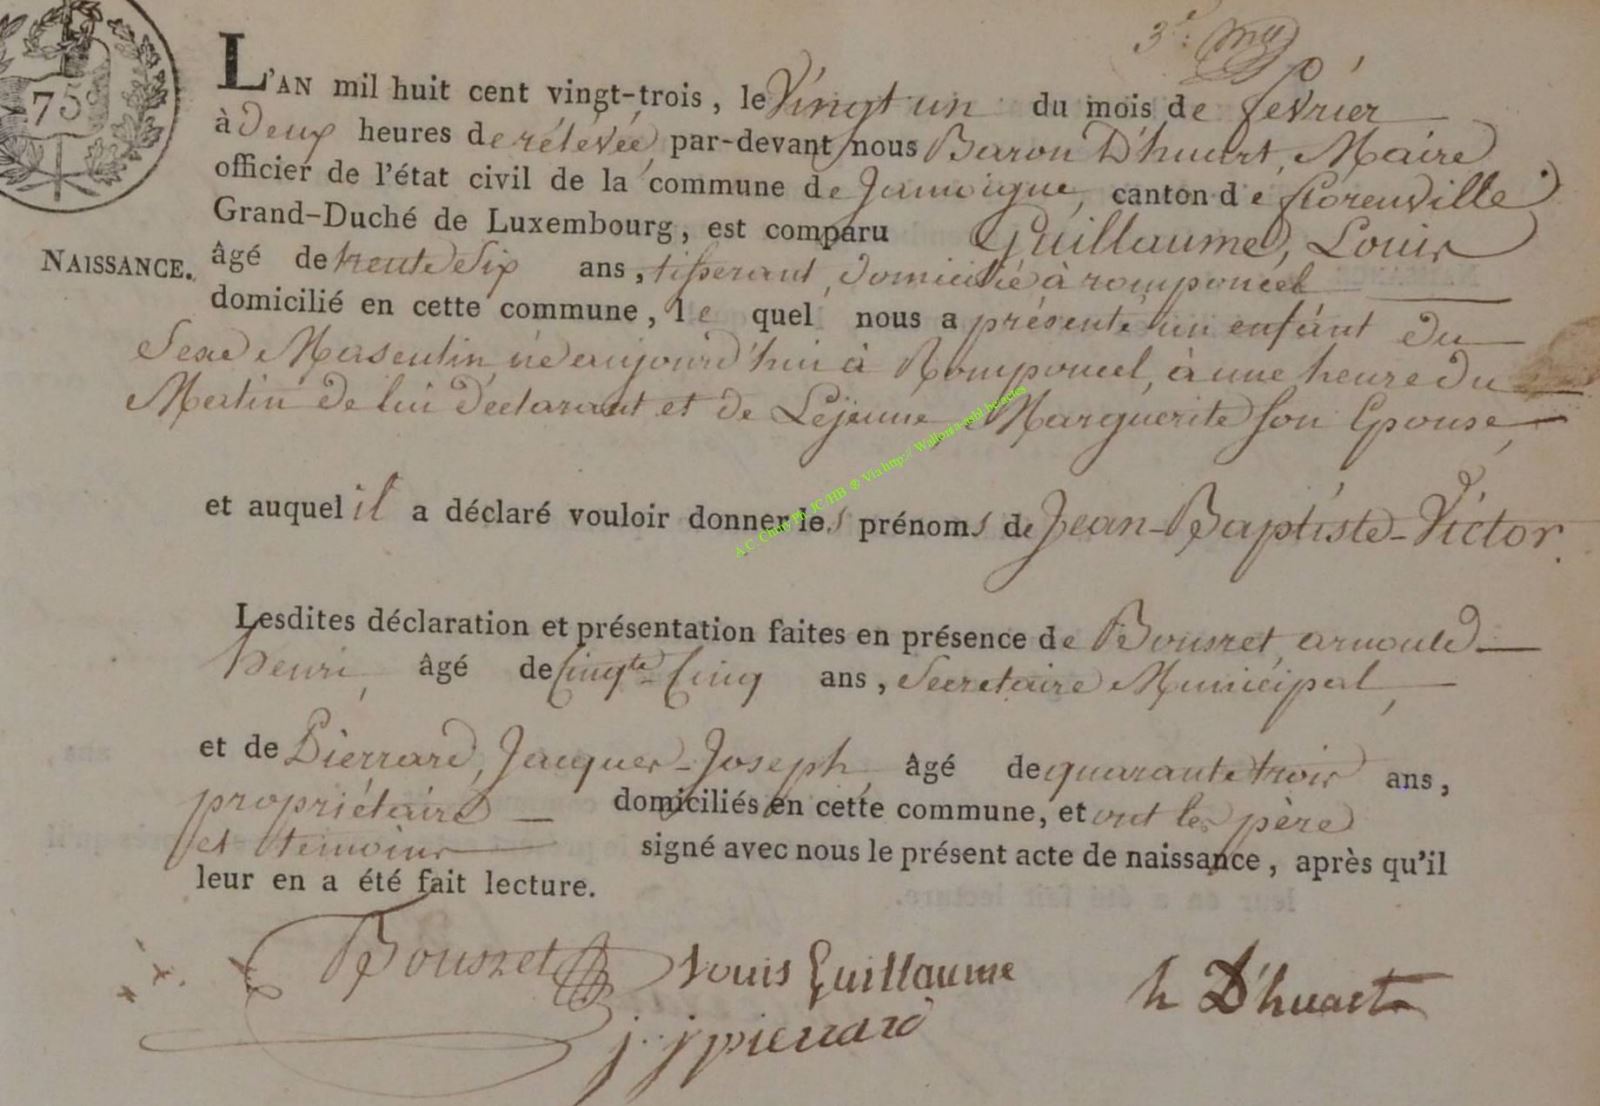 3e.
75
L'AN mil huit cent vingt-trois, le Vingt un du mois de fevrier
à deux heures de rélévée, par-devant nous Baron D'huart, Maire
officier de l'état civil de la commune de Jamoigne, canton de florenville
Grand-Duché de Luxembourg, est comparu Guillaume, Louis
NAISSANCE.
âgé de trente six ans, tisserant, domicilié à romponcel
domicilié en cette commune, le quel nous a présenté un enfant du
Sexe Masculin, né aujourd'hui à Romponcel, à une heure du
Matin de lui déclarant et de Lejeune Marguerite son Epouse,
et auquel il a déclaré vouloir donner les prénoms de Jean-Baptiste-Victor.
Lesdites déclaration et présentation faites en présence de Housret, arnould
henri, âgé de Cinqte-Cinq ans, Secretaire Municipal,
et de Pierrard, Jacques-Joseph, âgé de quarante trois ans,
propriétaire domiciliés en cette commune, et ont les père
et temoins signé avec nous le présent acte de naissance, après qu'il
leur en a été fait lecture.
Housret Louis Guillaume
h D'huart
j. j pierrard
A.C. Chiny Ph JC/HB @ Via http:// Wallonia-asbl.be/actes